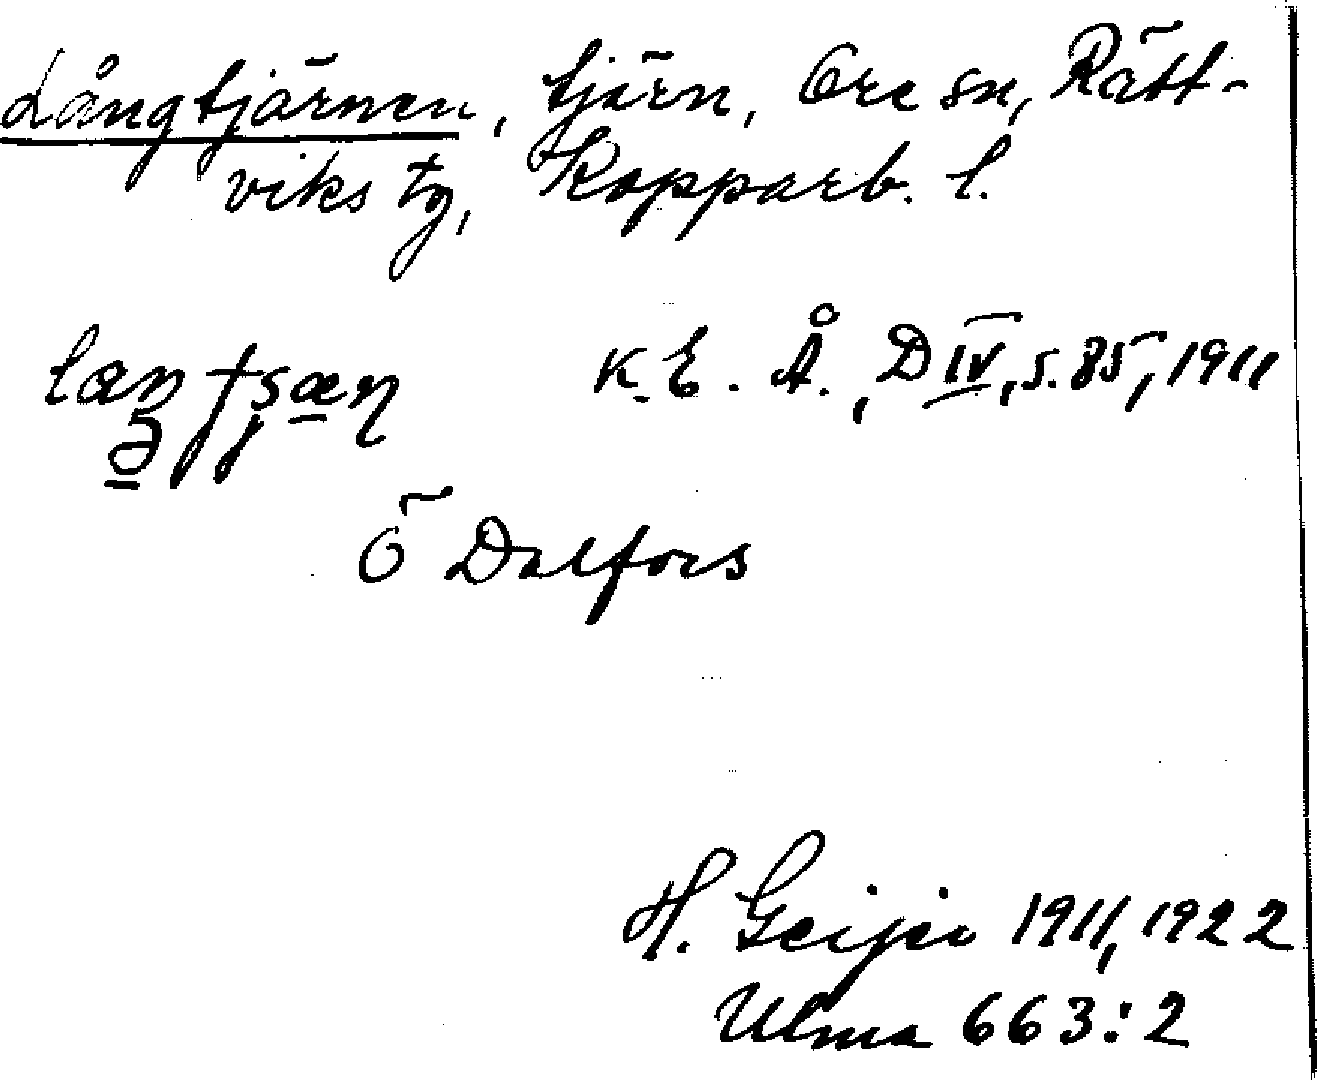 Långtjärnen, tjärn, Ore sn, Rätt-
viks tg, Kopparb. l.
K.E.Å., D IV, s. 85, 1911
Ö Dalfors
H. Geijer 1911, 1922
Ulma 663:2